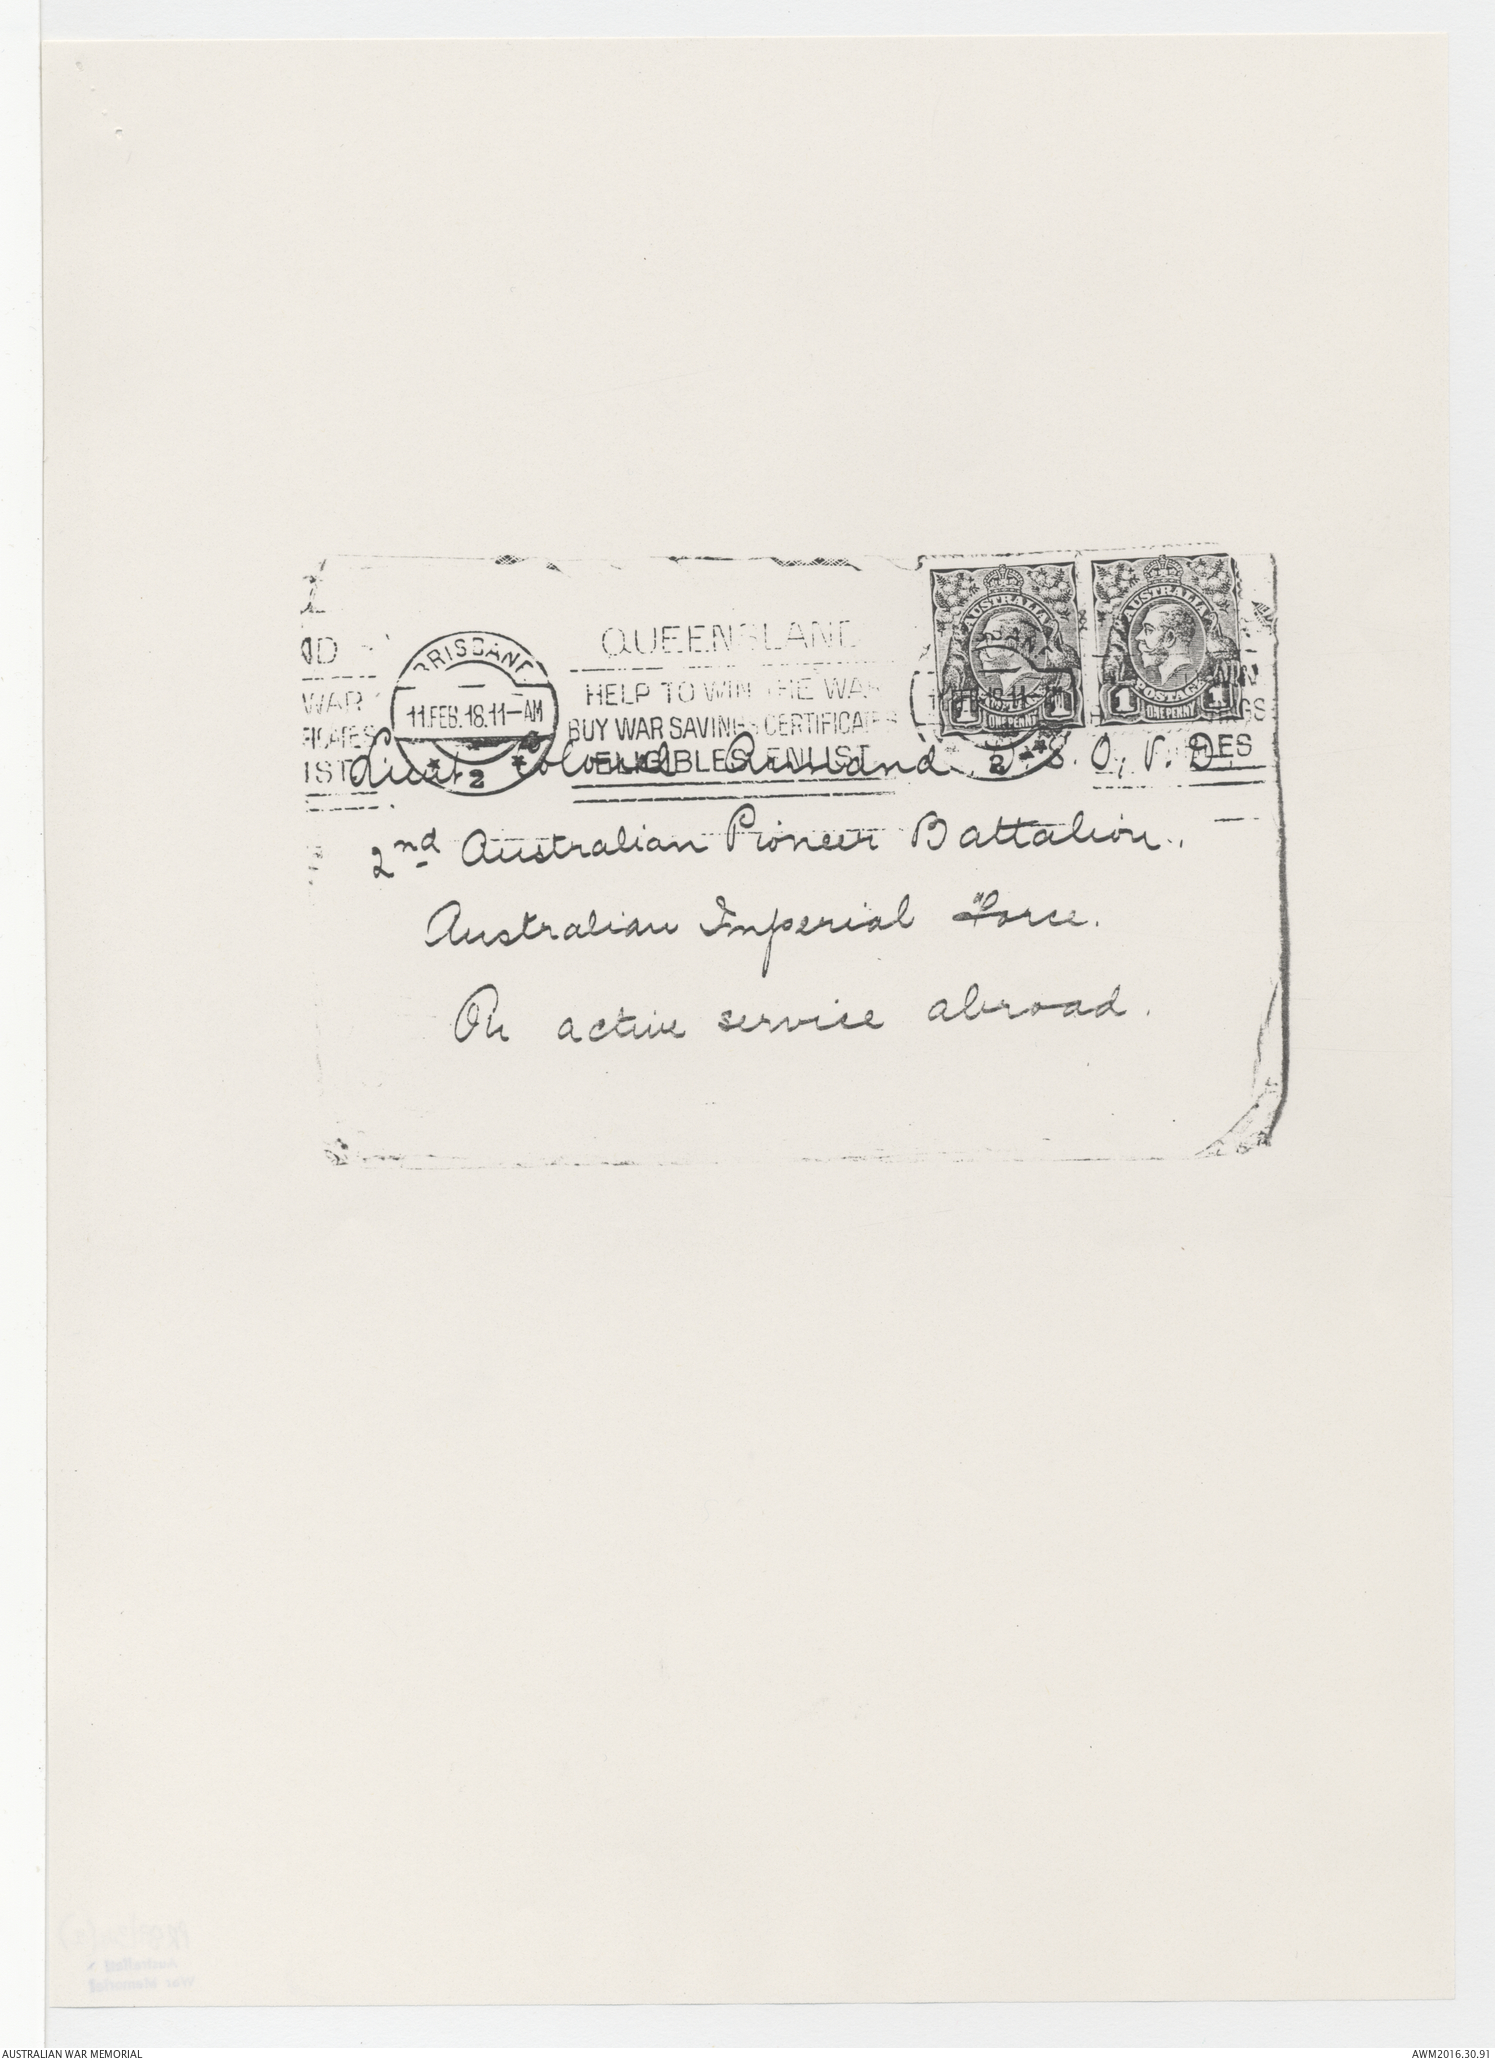 QUEENSLAND
HELP TO WIN THE WAR
BUY WAR SAVINGS CERTIFICATES
ELIGIBLES ENLIST
BRISBANE
11.FEB.18.11-AM
2
ND
WAR
FICATES
IST
AUSTRALIA
POSTAGE
1 ONE PENNY 1
AUSTRALIA
POSTAGE
1 ONE PENNY 1
2
WIN
NGS
ES
Lieut. Colonel Annand D.S.O, V.D.
2nd Australian Pioneer Battalion.,
Australian Imperial Force.
On active service abroad.
Australian
War Memorial
AUSTRALIAN WAR MEMORIAL
AWM2016.30.91